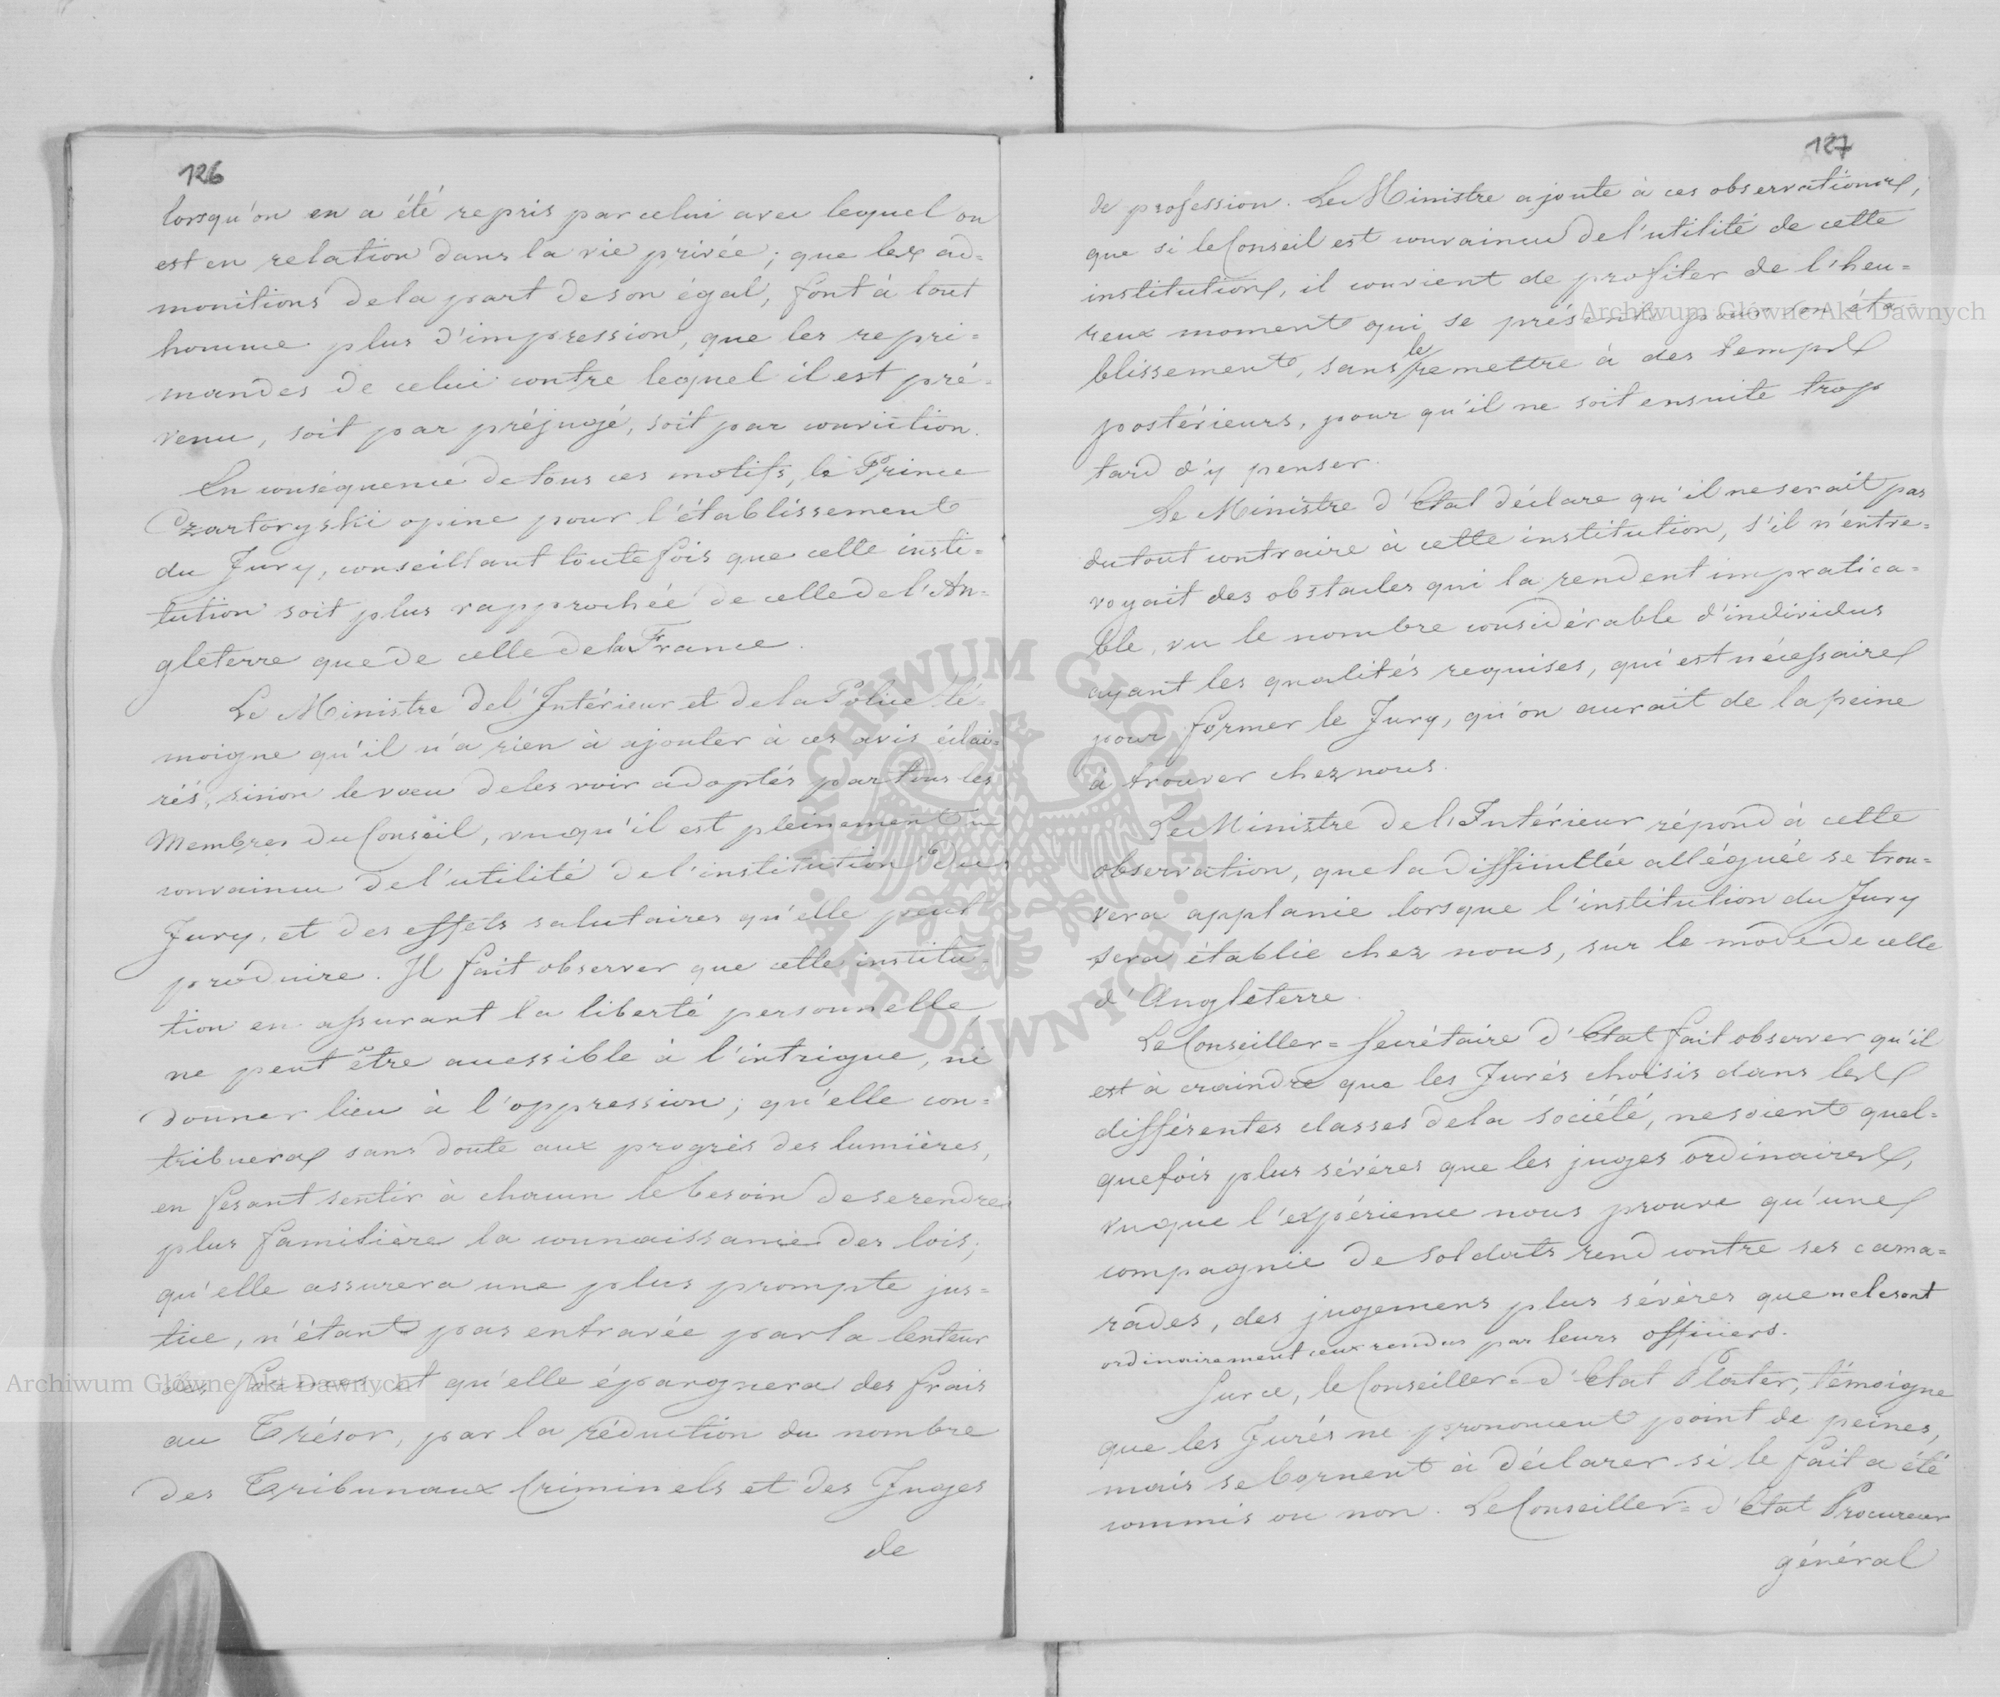 126
lorsqu'on en a été repris par celui avec lequel on
est en relation dans la vie privée; que les ad=
monitions de la part de son égal, font à tout
homme plus d'impression, que les repri=
mandes de celui contre lequel il est pré=
venu, soit par préjugé, soit par conviction.
En conséquence de tous ces motifs, le Prince
Czartoryski opine pour l'établissement
du Jury, conseillant toutefois que cette insti=
tution soit plus rapprochée de celle de l'An=
gleterre que de celle de la France.
Le Ministre de l'Intérieur et de la Police té=
moigne qu'il n'a rien à ajouter à ces avis éclai=
rés, sinon le vœu de les voir adoptés par tous les
Membres du Conseil, vu qu'il est pleinement
convaincu de l'utilité de l'institution du
Jury, et des effets salutaires qu'elle peut
produire. Il fait observer que cette institu=
tion en assurant la liberté personnelle,
ne peut être accessible à l'intrigue, ni
donner lieu à l'oppression; qu'elle con=
tribuera sans doute aux progrès des lumières,
en fesant sentir à chacun le besoin de se rendre
plus familière la connaissance des lois;
qu'elle assurera une plus prompte jus=
tice, n'étant pas entravée par la lenteur
des formes et qu'elle épargnera des frais
au Trésor, par la réduction du nombre
des Tribunaux Criminels et des Juges
de
127
de profession. Le Ministre ajoute à ces observations,
que si le Conseil est convaincu de l'utilité de cette
institution, il convient de profiter de l'heu=
reux moment qui se présente pour son éta
blissement, sans le remettre à des temps
postérieurs, pour qu'il ne soit ensuite trop
tard d'y penser.
Le Ministre d'Etat déclare qu'il ne serait pas
du tout contraire à cette institution, s'il n'entre=
voyait des obstacles qui la rendent impratica=
ble, vu le nombre considérable d'individus
ayant les qualités requises, qui est nécessaire
pour former le Jury, qu'on aurait de la peine
à trouver chez nous.
Le Ministre de l'Intérieur répond à cette
observation, que la difficultée alléguée se trou=
vera applanie lorsque l'institution du Jury
sera établie chez nous, sur le mode de celle
d'Angleterre.
Le Conseiller=Secrétaire d'Etat fait observer qu'il
est à craindre que les Jurés choisis dans les
différentes classes de la société, ne soient quel=
quefois plus sévères que les juges ordinaires,
vu que l'expérience nous prouve qu'une
compagnie de soldats rend contre ses cama=
rades, des jugemens plus sévères que ne le sont
ordinairement ceux rendus par leurs officiers.
Sur ce, le Conseiller=d'Etat Plater, témoigne
que les Jurés ne prononcent point de peines,
mais se bornent à déclarer si le fait a été
commis ou non. Le Conseiller=d'Etat Procureur
général
Archiwum Główne Akt Dawnych
Archiwum Główne Akt Dawnych
ARCHIWUM GŁÓWNE · AKT DAWNYCH ·